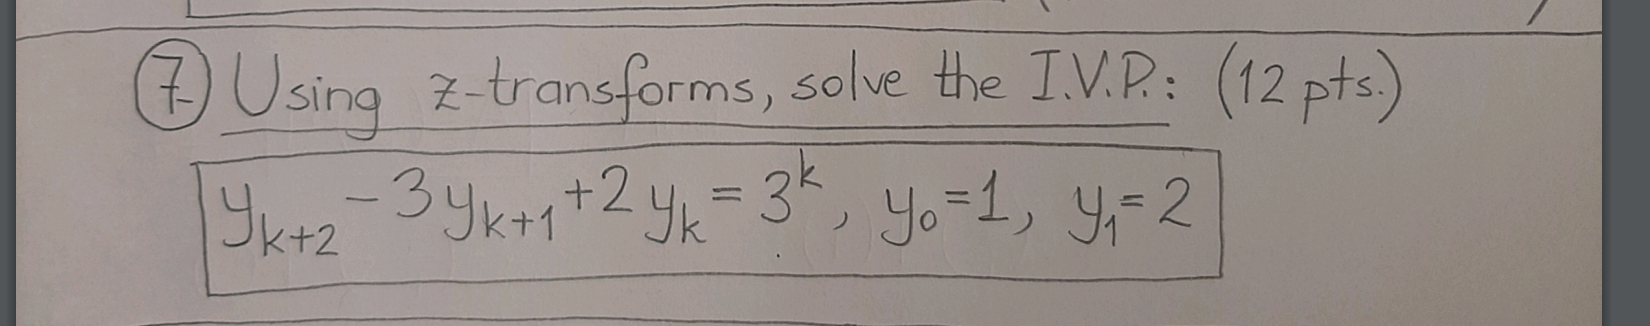 7. Using z-transforms, solve the I.V.P.: (12 pts.)
yₖ₊₂ - 3yₖ₊₁ + 2yₖ = 3ᵏ, y₀=1, y₁=2